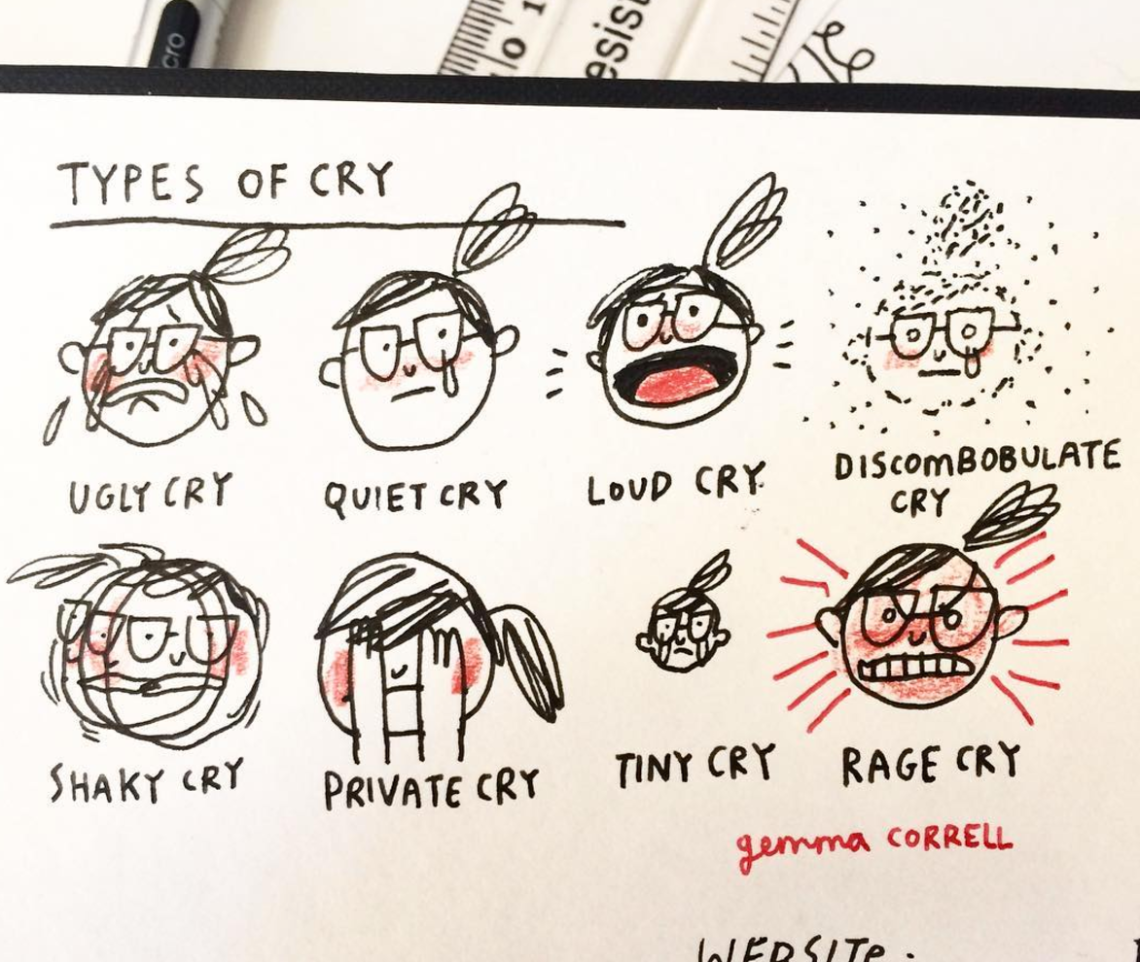 cro
0 1
esist
TYPES OF CRY
UGLY CRY
QUIET CRY
LOUD CRY
DISCOMBOBULATE
CRY
SHAKY CRY
PRIVATE CRY
TINY CRY
RAGE CRY
gemma CORRELL
WEBSITE: